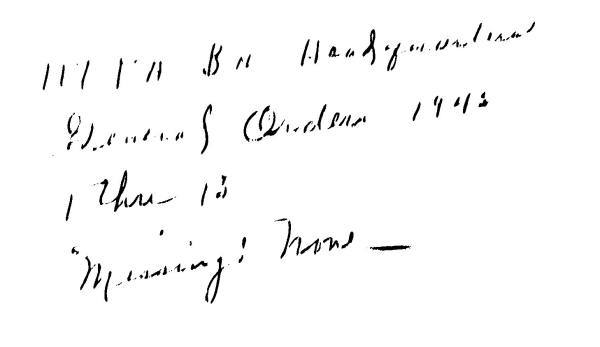 FA Bn Headquarters
General Orders
1 Thru
"Missing: None —